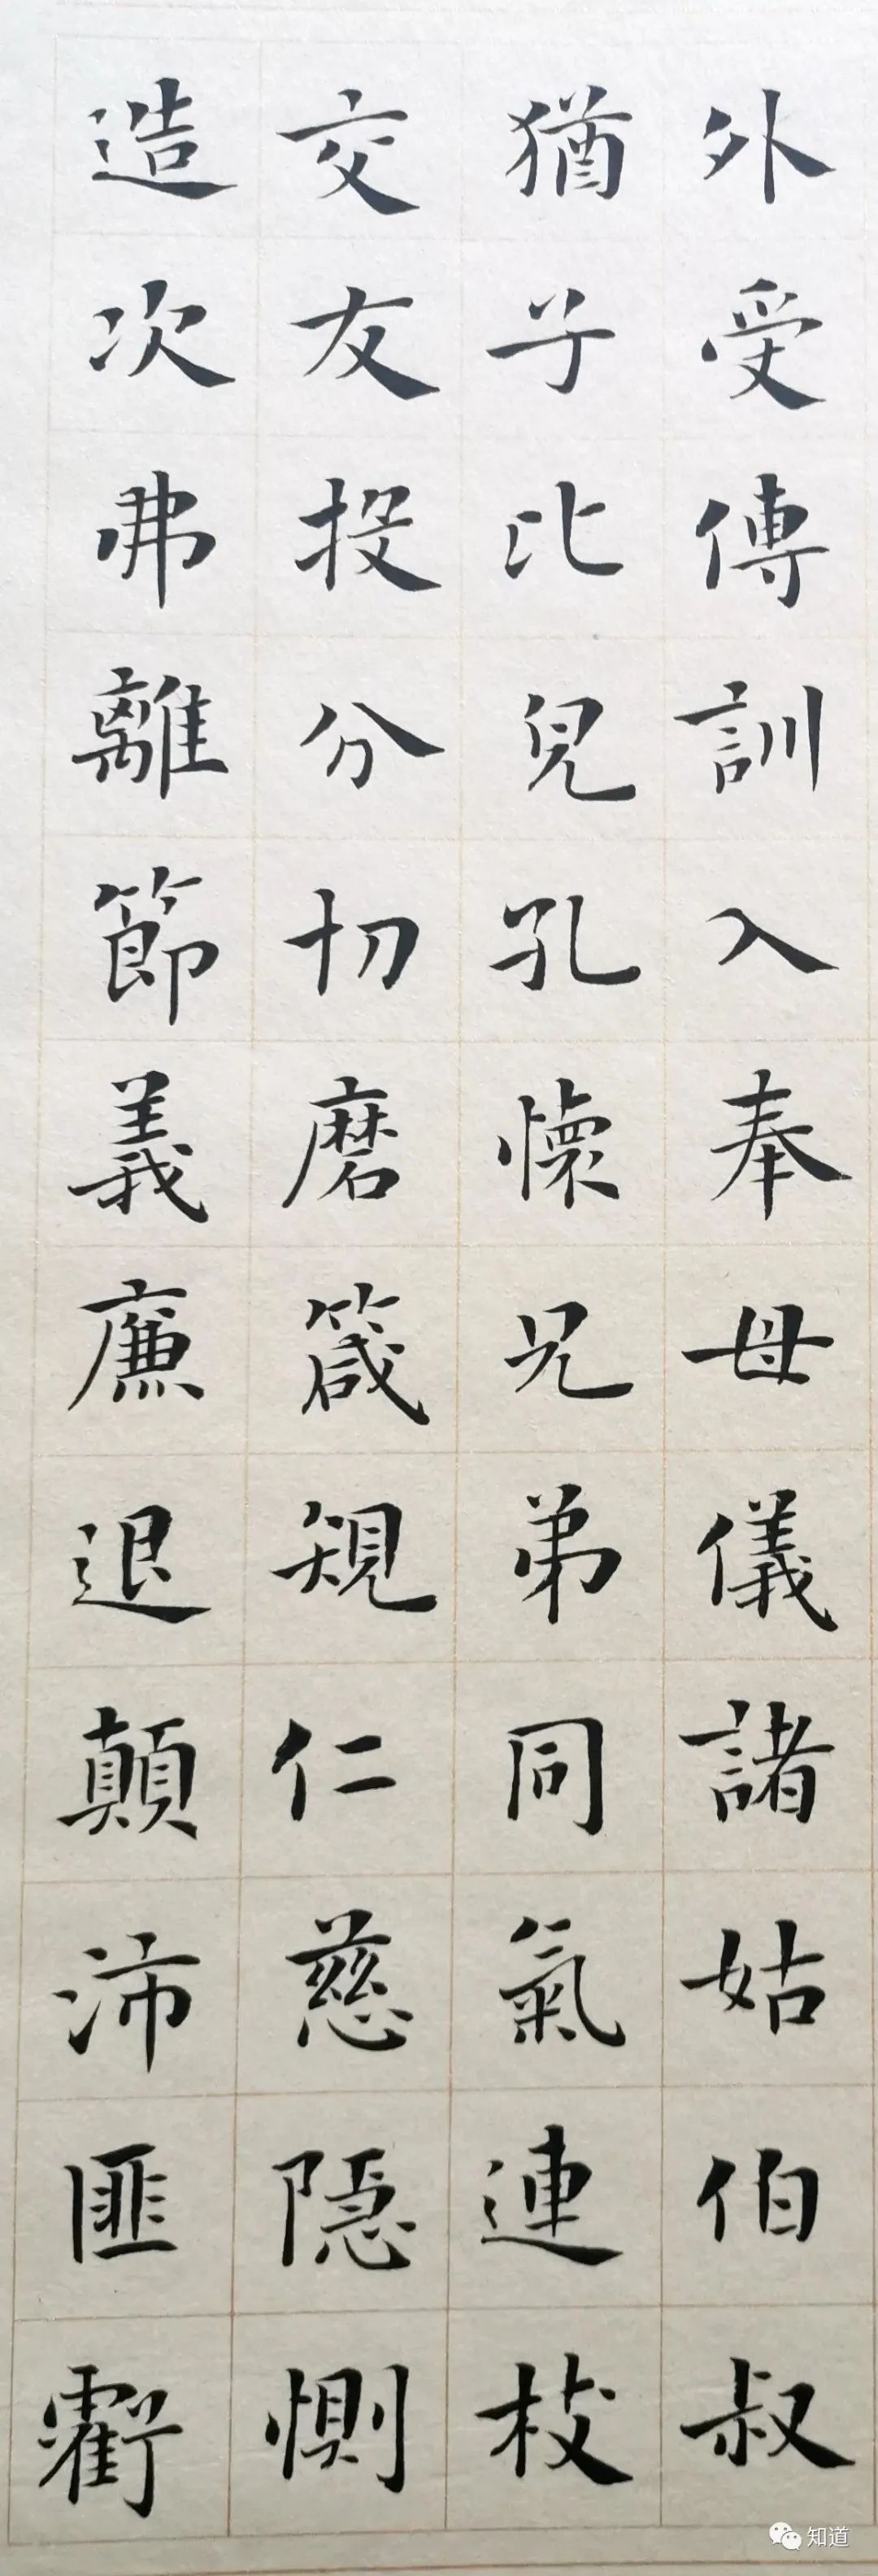 外受傅訓入奉母儀諸姑伯叔
猶子比兒孔懷兄弟同氣連枝
交友投分切磨箴規仁慈隱惻
造次弗離節義廉退顛沛匪虧
知道